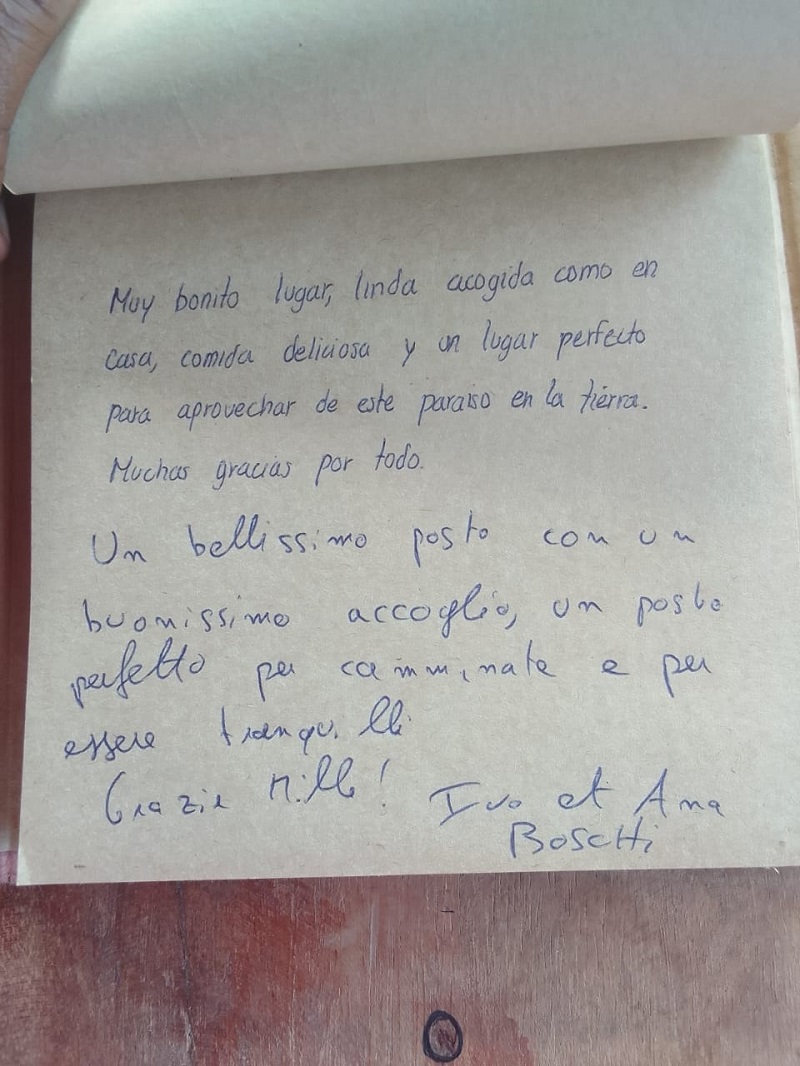 Muy bonito lugar, linda acogida como en
casa, comida deliciosa y un lugar perfecto
para aprovechar de este paraiso en la tierra.
Muchas gracias por todo.
Un bellissimo posto con un
buonissimo accoglio, un posto
perfetto per camminate e per
essere tranquilli
Grazie Mille! Ivo et Ana
Boschi